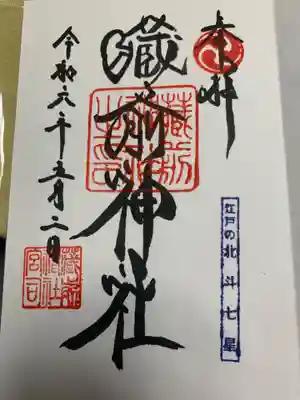 奉拝
江戸の北斗七星
藏前神社
令和六年五月二日